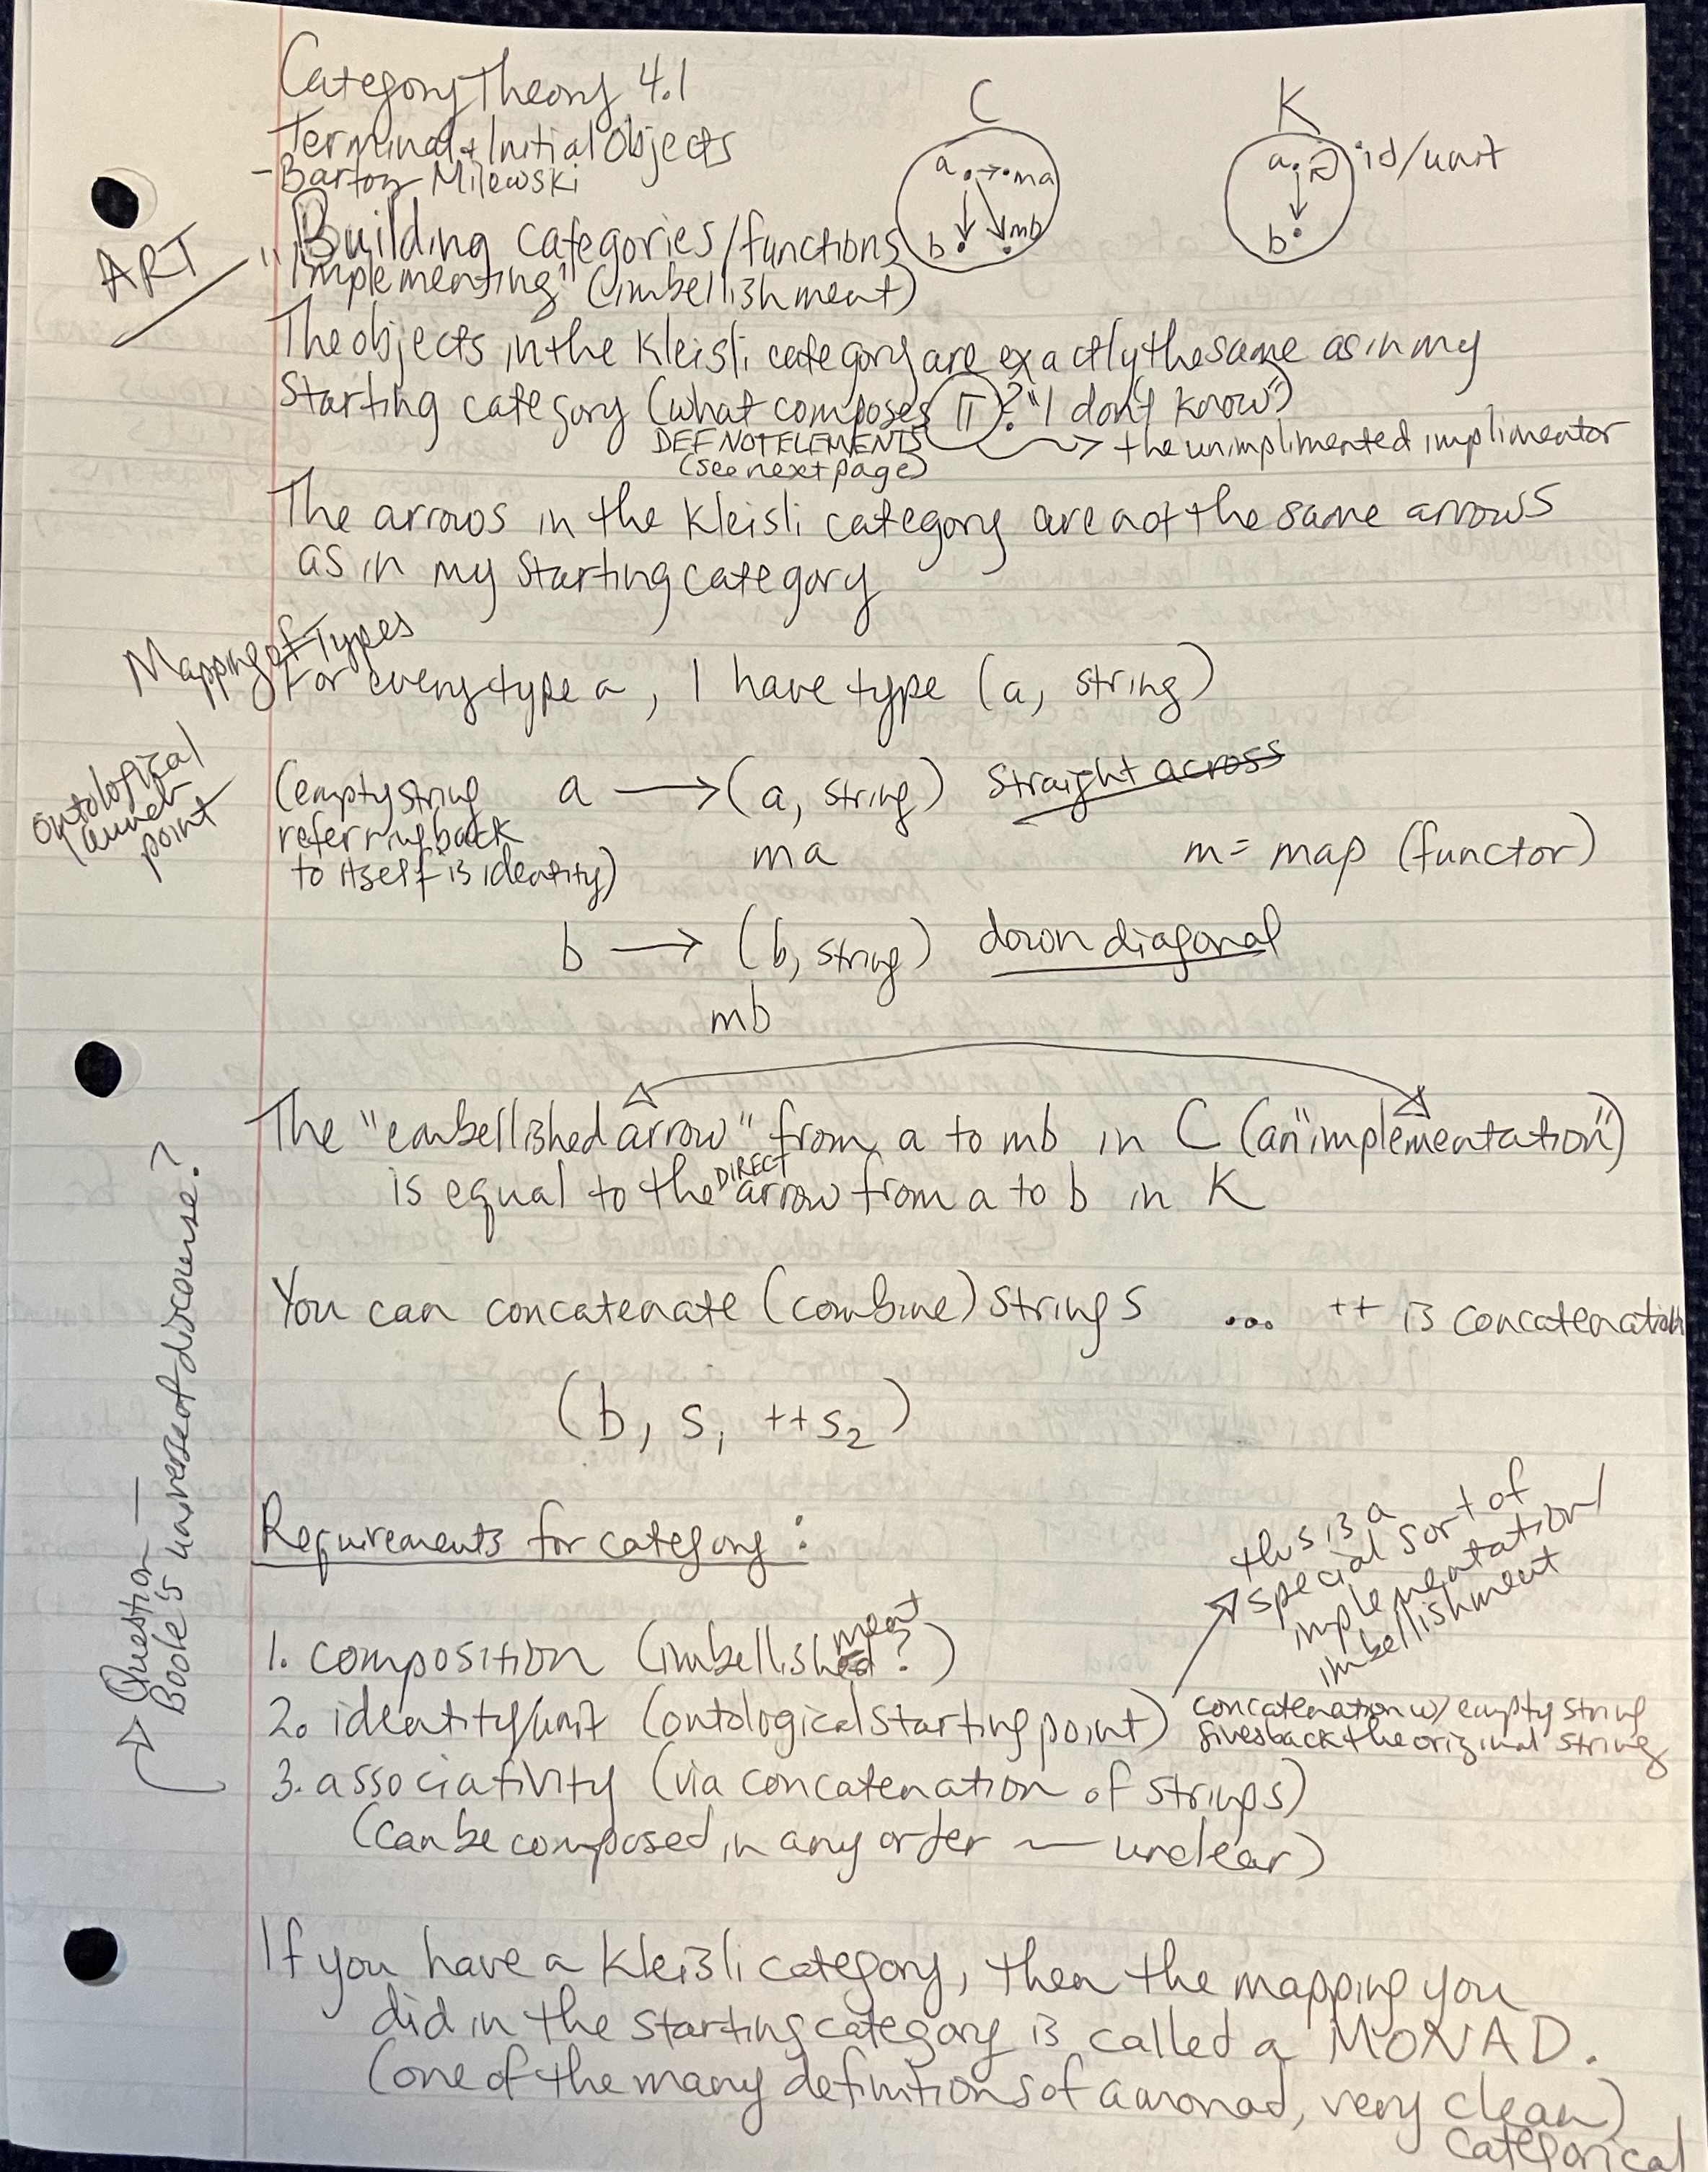 Category Theory 4.1
Terminal + Initial Objects
- Bartosz Milewski
C
a
ma
b
mb
K
a
id/unit
b
ART
Building categories/functions
"Implementing" (imbellishment)
The objects in the Kleisli category are exactly the same as in my
starting category (what composes π? "I don't know")
DEF NOT ELEMENTS
(see next page)
the unimplimented implimentor
The arrows in the Kleisli category are not the same arrows
as in my starting category
Mapping of Types
For every type a, I have type (a, string)
Ontological
launch
point
(empty string
referring back
to itself is identity)
a → (a, string) straight across
ma
m = map (functor)
b → (b, string) down diagonal
mb
The "embellished arrow" from a to mb in C (an "implementation")
is equal to the DIRECT arrow from a to b in K
You can concatenate (combine) strings ... ++ is concatenation
(b, s₁ ++s₂)
Question —
Boole's universe of discourse?
Requirements for category:
1. composition (imbellishment?)
2. identity/unit (ontological starting point)
this is a
special sort of
implementation/
imbellishment
concatenation w/ empty string
gives back the original string
3. associativity (via concatenation of strings)
(can be composed in any order — unclear)
If you have a Kleisli category, then the mapping you
did in the starting category is called a MONAD.
(one of the many definitions of a monad, very clean)
categorical